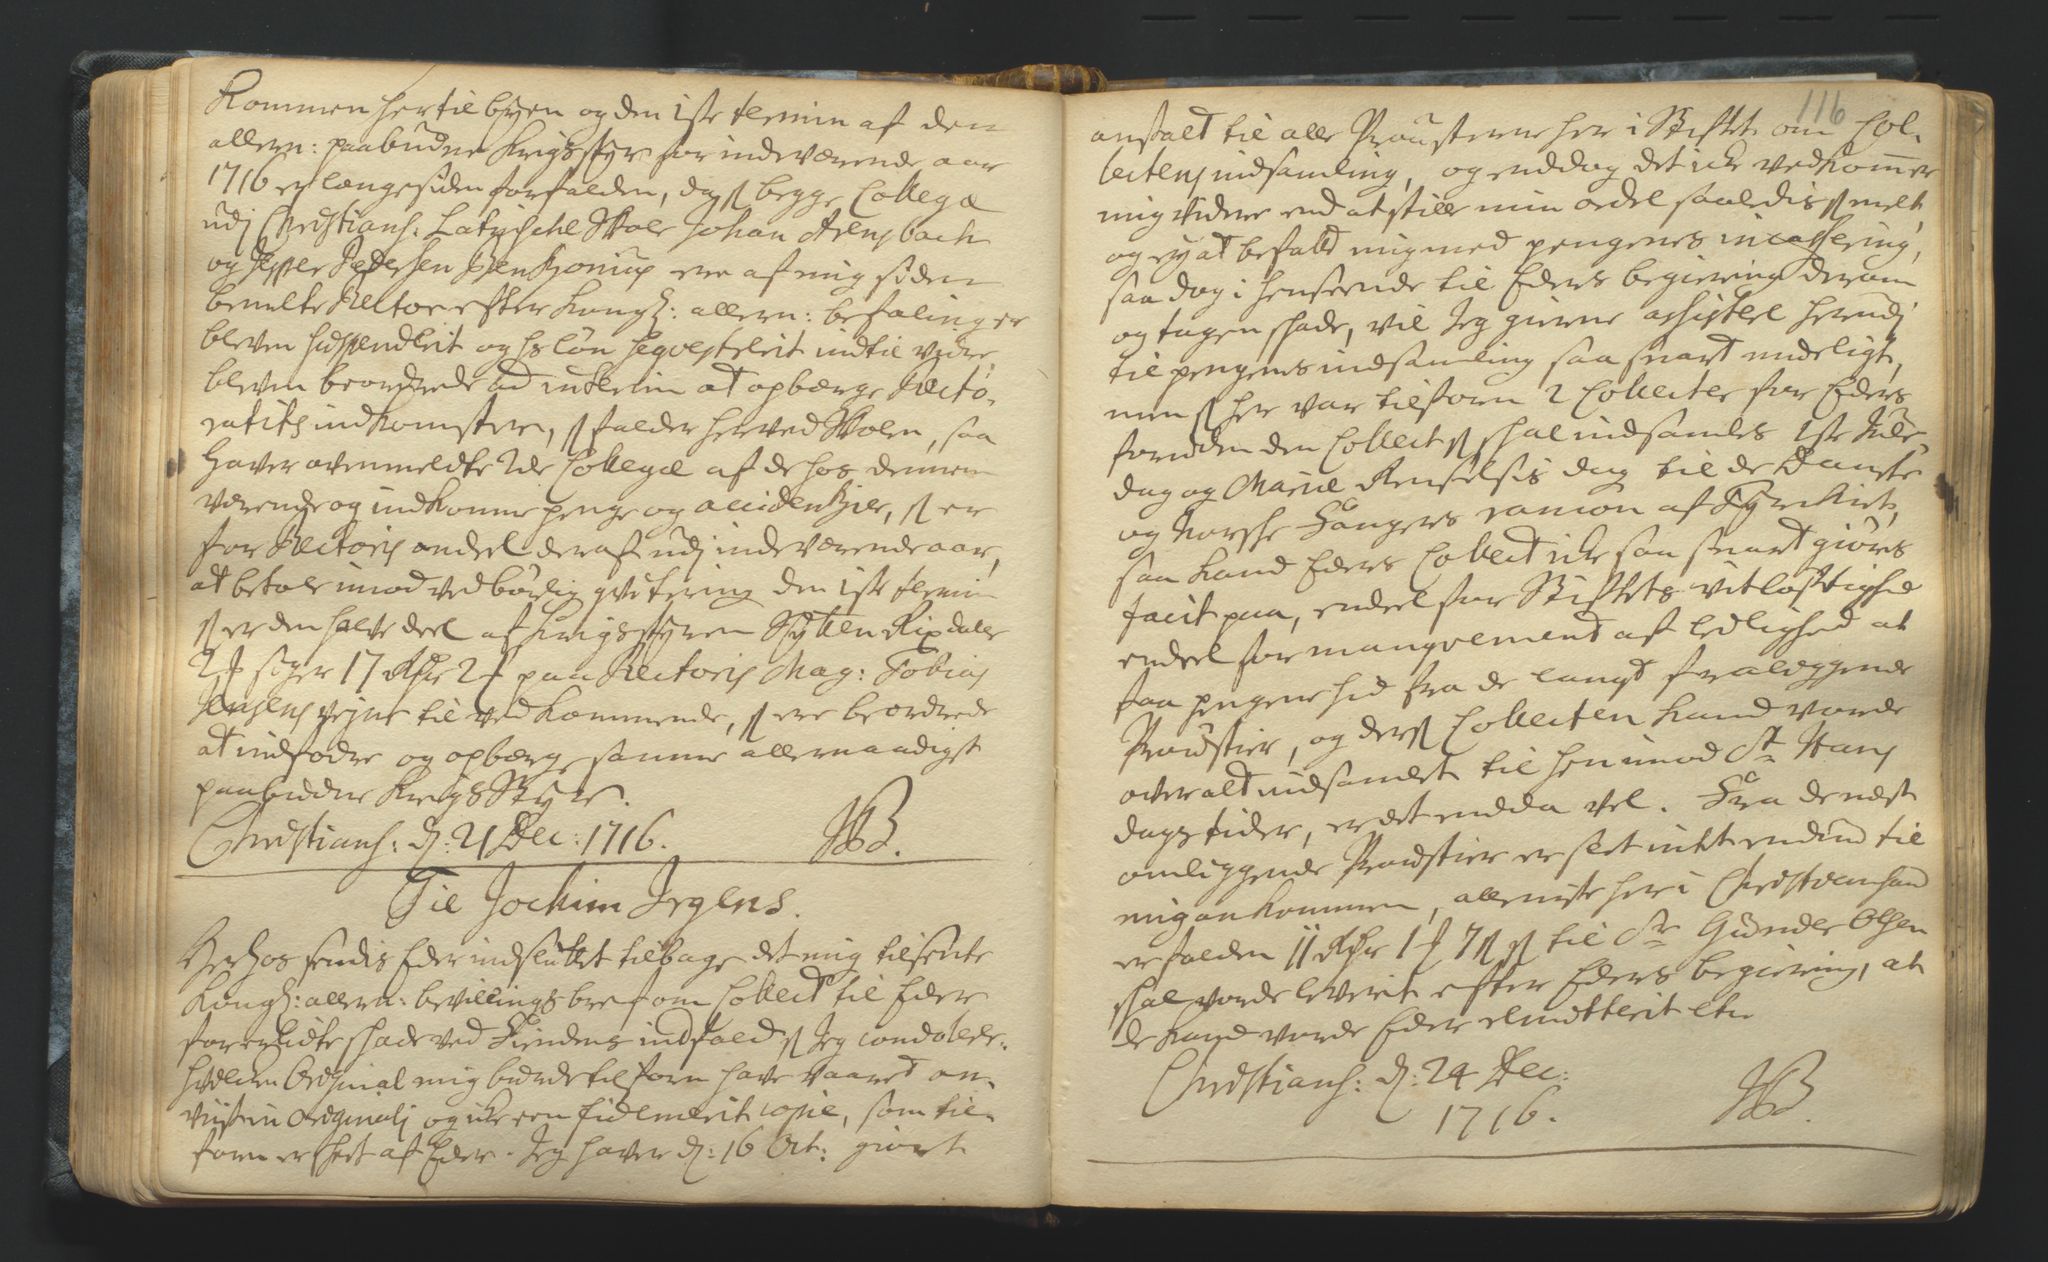 Kommen her til byen og den 1ste termin af den
allern: paabudne Krigsstyr for indeværende aar
1716 er længe siden forfalden, da begge Collegæ
udj Christians: Latinsche Skole Johan Arensbach
og Jesper Pedersen ere af mig siden
bemelte Rector efter Kongl: allern: befalinger
bleven suspenderit og hs løn seqvesterit indtil videre
bleven beordrede ad interim at opbærge Recto-
ratits indkomster, s falder her ved Skolen, saa
haver ovenmeldte 2de Collegæ af de hos dennem
værende og indkomne penge og accidentzier, s er
for Rectoris andel deraf udj indeværende aar,
at betale imod vedbørlig qvitering den 1ste termin
s er den halve deel af Krigsstyren Sytten Rixdaler
2 siger 17 Rdr 2 paa Rectoris Mag: Tobias
Jensens vegne til vedkommende, s ere beordrede
at indfodre og opbærge samme allernaadigst
paabudne Krigs Styr.
Christians: d: 21 Dec: 1716.
Til Jochim Jrgens.
Herhos sendis Eder indsluttet tilbage det mig tilsente
Kongl: allern: bevillings bref om Collect til Eder
for erlidte skade ved Fiendens indfald s Jeg condolerer.
hvilcken Original mig burde tilforn have vaaret an-
viist in originalj og icke een fidemerit copie, som til-
forn er skeet af Eder. Jeg haver d: 16 Oct: giort
116
anstalt til alle Prousterne her i Stiftet om Col-
lectens indsamling, og enddog det icke vedkommer
mig videre end at stille min ordre saaledis s melt,
og ey at befatte mig med pengenes incassering,
saa dog i henseende til Eders begiering derom
og tagen skade, vil Jeg gierne assistere herudj
til pengenes indsamling saa snart mueligt,
men s her var tilforn 2 Collecter for Eders
foruden den Collect s skal indsamles 1ste Jule
dag og Mariæ Renselsis dag til de Danske
og Norske Fangers rantzon af Tyrckiet,
saa kand Eders Collect icke saa snart giøres
facit paa, endeel for Stiftets vitløftighed
endeel for manqvement af leilighed at
faa pengene hid fra de langt fraliggende
Proustier, og ders Collecten kand vorde
overalt indsamlet til hen imod St Hans
dags tider, er det endda vel. Fra de næst
omliggende Proustier er slet intet endnu til
mig ankommen, alleniste her i Christiansand
er falden 11 Rdr 1 7 s s til Sr Gunder Olsen
skal vorde leverit efter Eders begiering, at
de kand vorde Eder remitterit etc
Christians: d: 24 Dec:
1716.